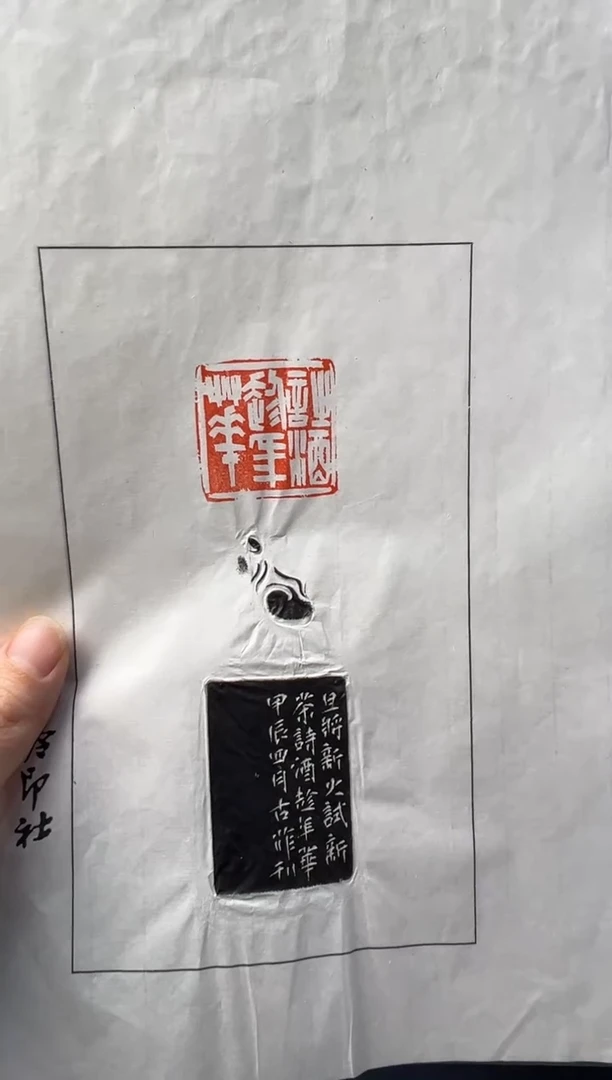 詩酒
趁年
華
且將新火試新
茶詩酒趁年華
甲辰四月古刊
印社